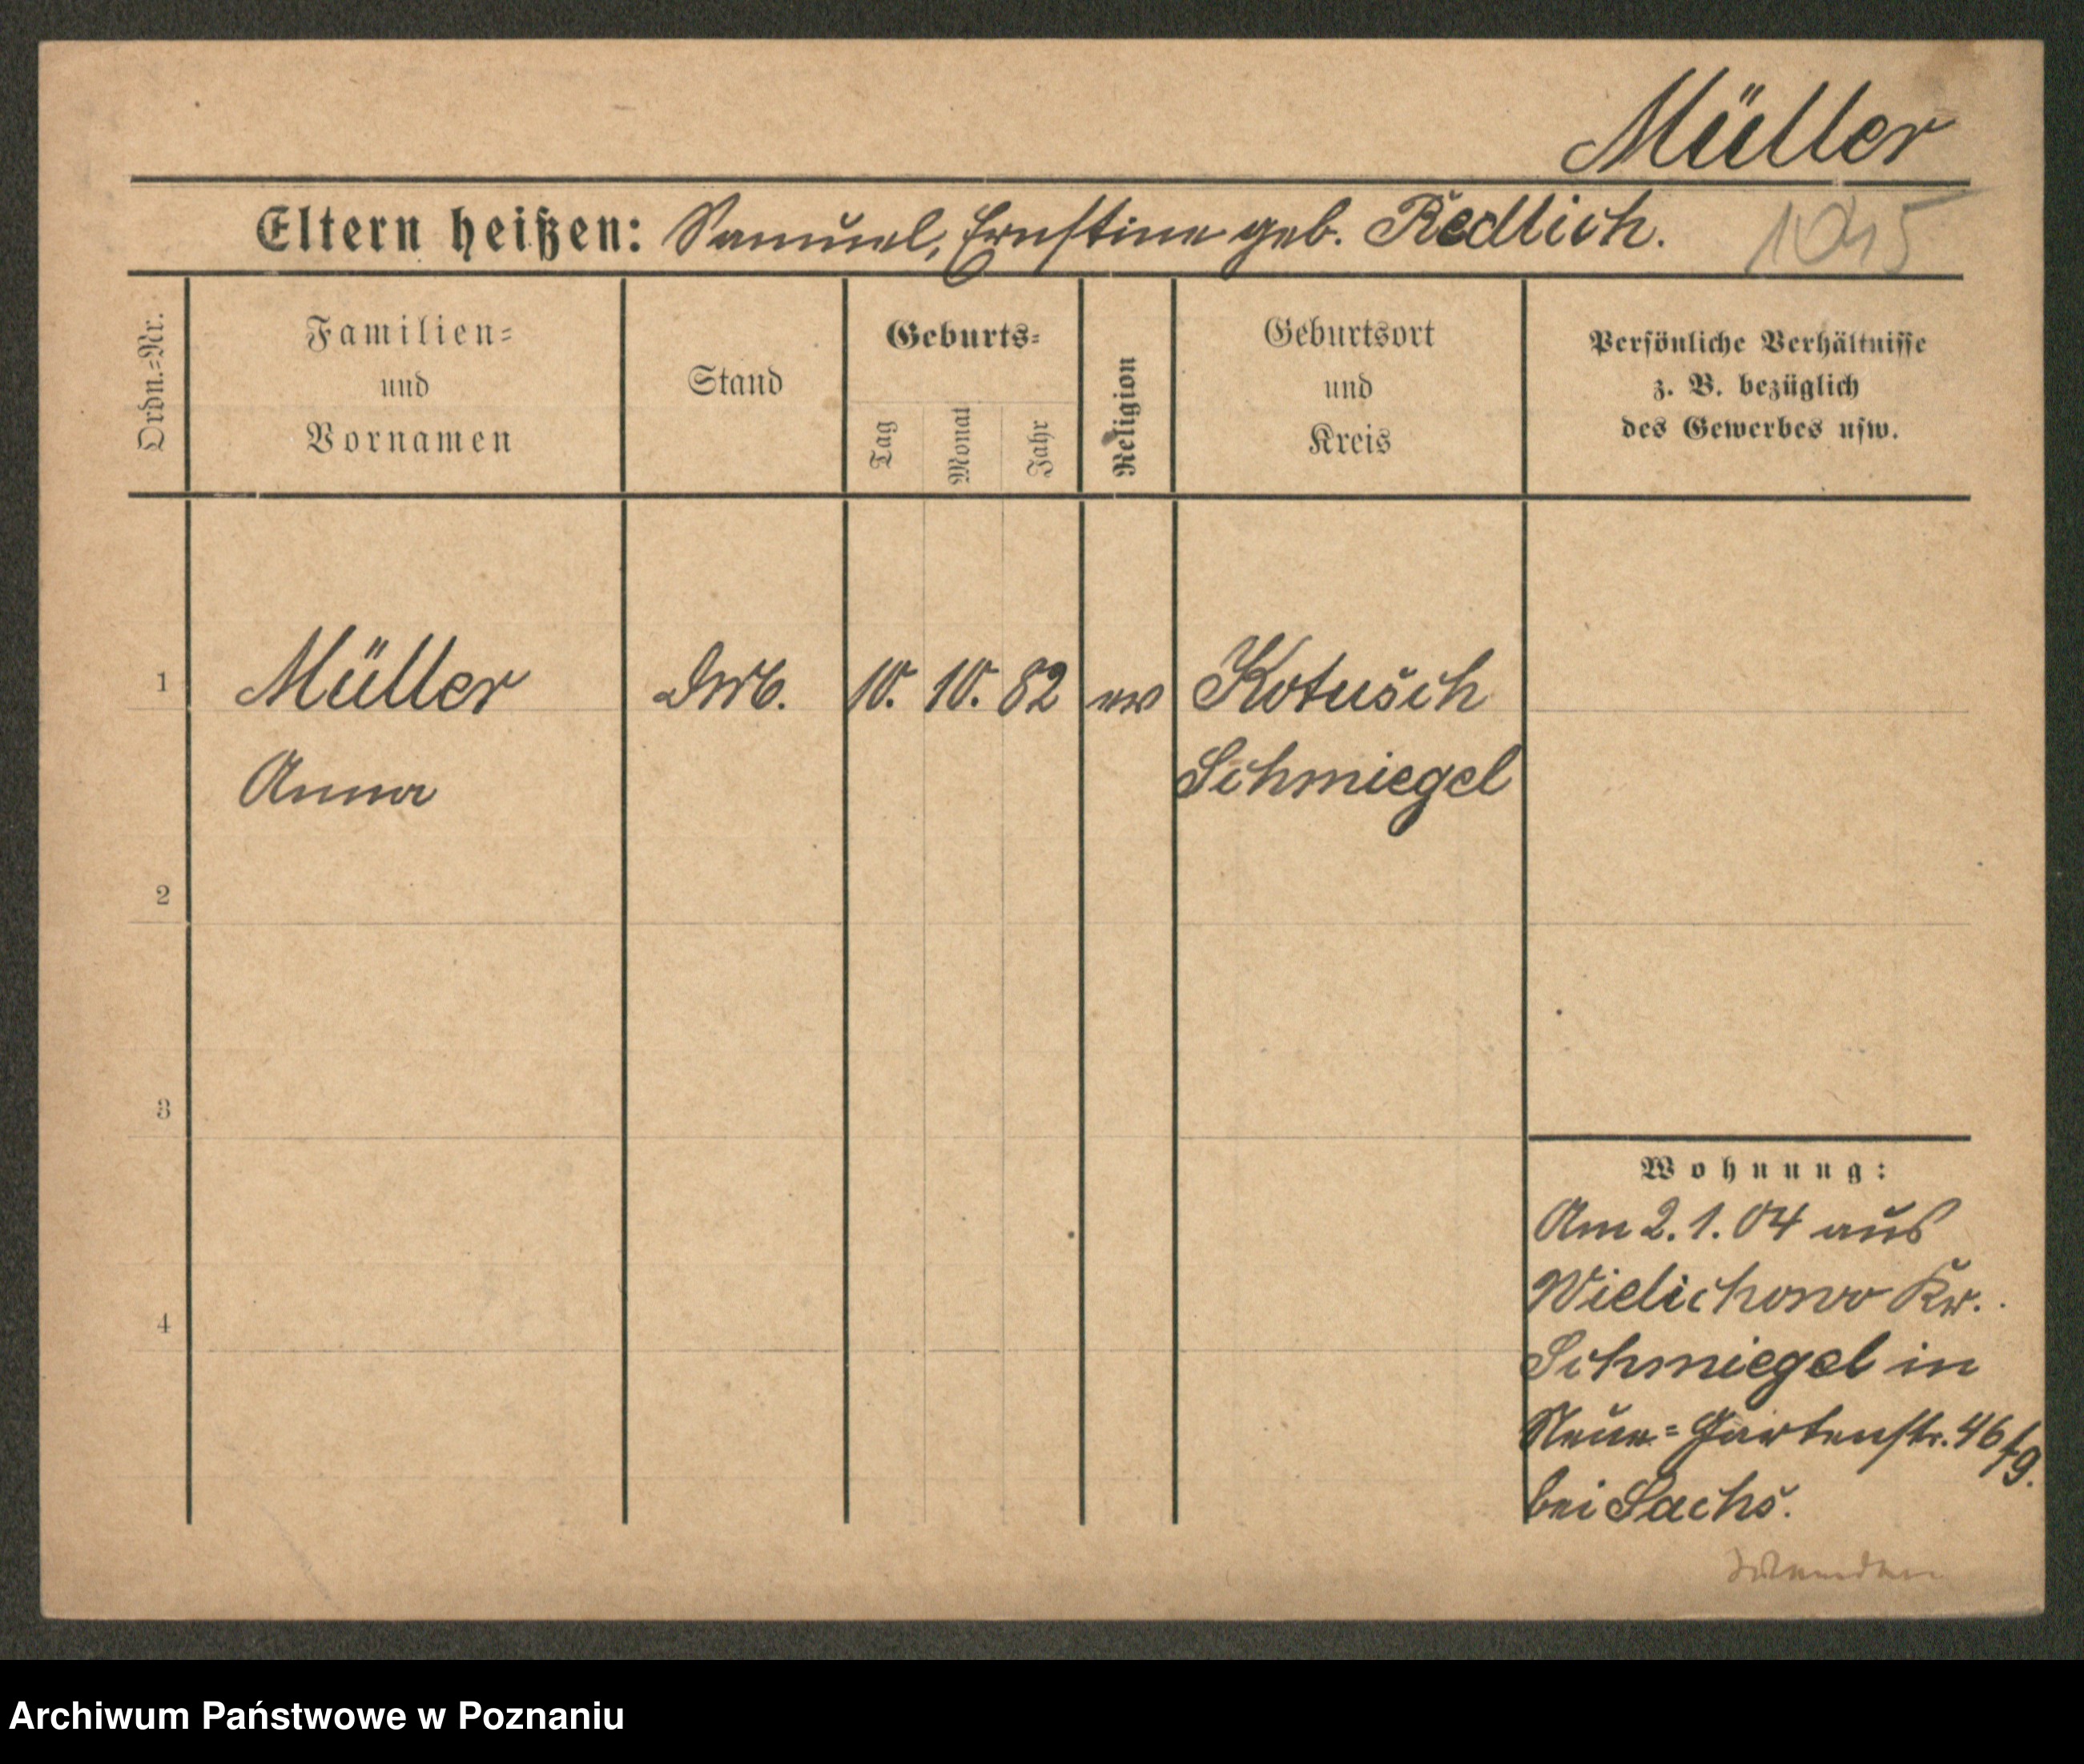 Müller
Eltern heißen: Samuel, Ernstine geb. Redlich.
1045
Ordn.=Nr.
Familien=
und
Vornamen
Stand
Geburts=
Tag
Monat
Jahr
Religion
Geburtsort
und
Kreis
Persönliche Verhältnisse
z. B. bezüglich
des Gewerbes usw.
1 Müller 10. 10. 82 ev Kotusch
Anna Schmiegel
2
3
4
Wohnung:
Am 2. 1. 04 aus
Wielichowo Kr.
Schmiegel in
Neue=Gartenstr. 46/49.
bei Sachs.
Archiwum Państwowe w Poznaniu